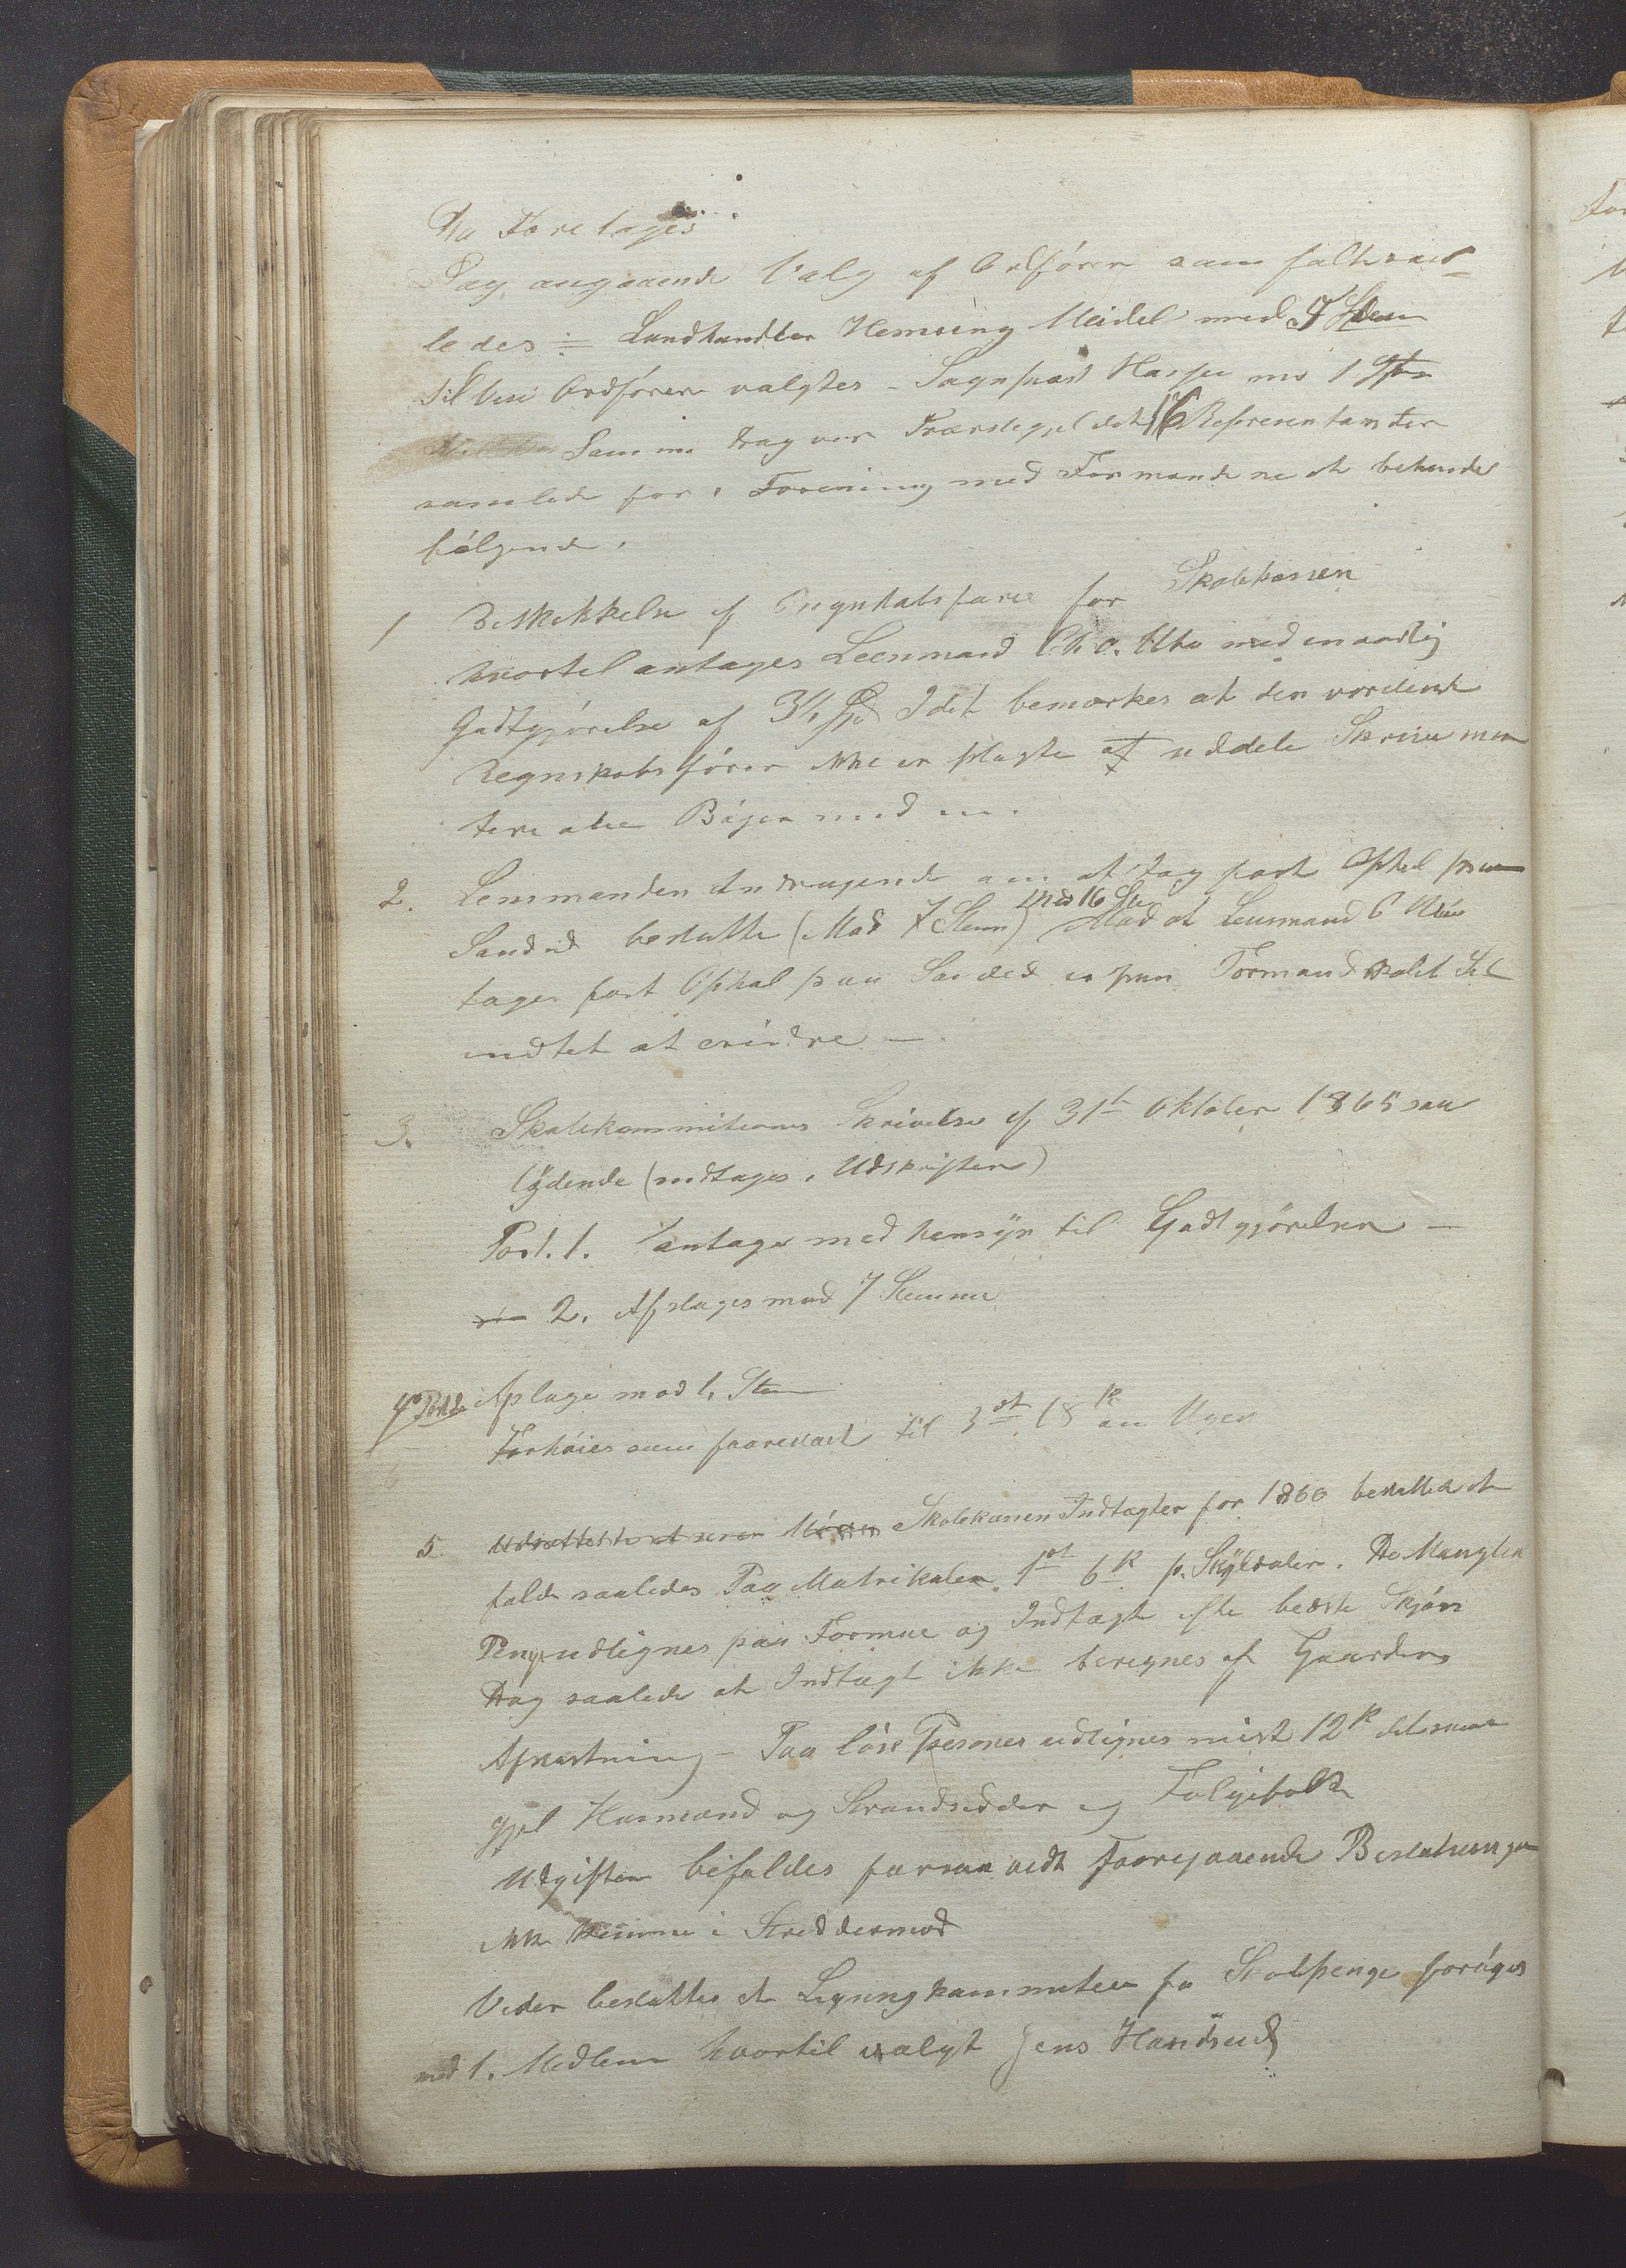 Da Foretages
Sag angaaende Valg af Ordförer som falt saa
ledes Landhandler Hemsing Meidel med 7 Stem
til Vise Ordförer valgtes Sogneprest med 1 Stem
Samme Dag var 16 Representanter
samlede for i Forening med Formændene at behandle
fölgende.
1 Beskikkelse af Regnskabsförer for Skolekassen
hvortil antages Leensmand med en aarlig
Godtgjörelse af 3½ Spd Idet bemærkes at den vordende
Regnskabsförer ikke er pligtig at uddele Skrive ma
teriale Böger med m.
2. Lensmanden Andragende om at tage fast Ophol paa
Sandeid beslutte (Mod 7 Stem) med 16 St. Mod at Lensmand
tager fast Ophol paa Sandeid er paa Formandskabet
indtet at erindre —
3. Skolekommitionens Skrivelse af 31te Oktober 1865 saa
lÿdende (indtages i Udskriften)
Post. 1. antages med hensÿn til Godtgjörelsen —
2. Afslages mod 7 Stemmer
4de Post Afslages mod 1. Stem
Forhöies som foreslaaet til 3 ort 18 s om Ugen
5. Skolekassen Indtægter for 1866 besluttedes at
falde saaledes Paa Matrikulen 1 ort 6 s p. Skÿlddaler. De Manglende
Penge udlignes paa Formue og Indtægt efter bedste Skjön
Dog saaledes at Indtægt ikke beregnes af Gaardens
Afkastning — Paa löse Personer udlignes minst 12 s det samme
gjel Husmænd og Strandsidder og Folgefolk
Udgiften bifaldes forsaavidt Foregaaende Beslutninger
ikke kommer i Strid dermed
Vider besluttes at Ligningkommiteen for Skolepenge foröges
med 1. Medlem hvortil valgt Jens